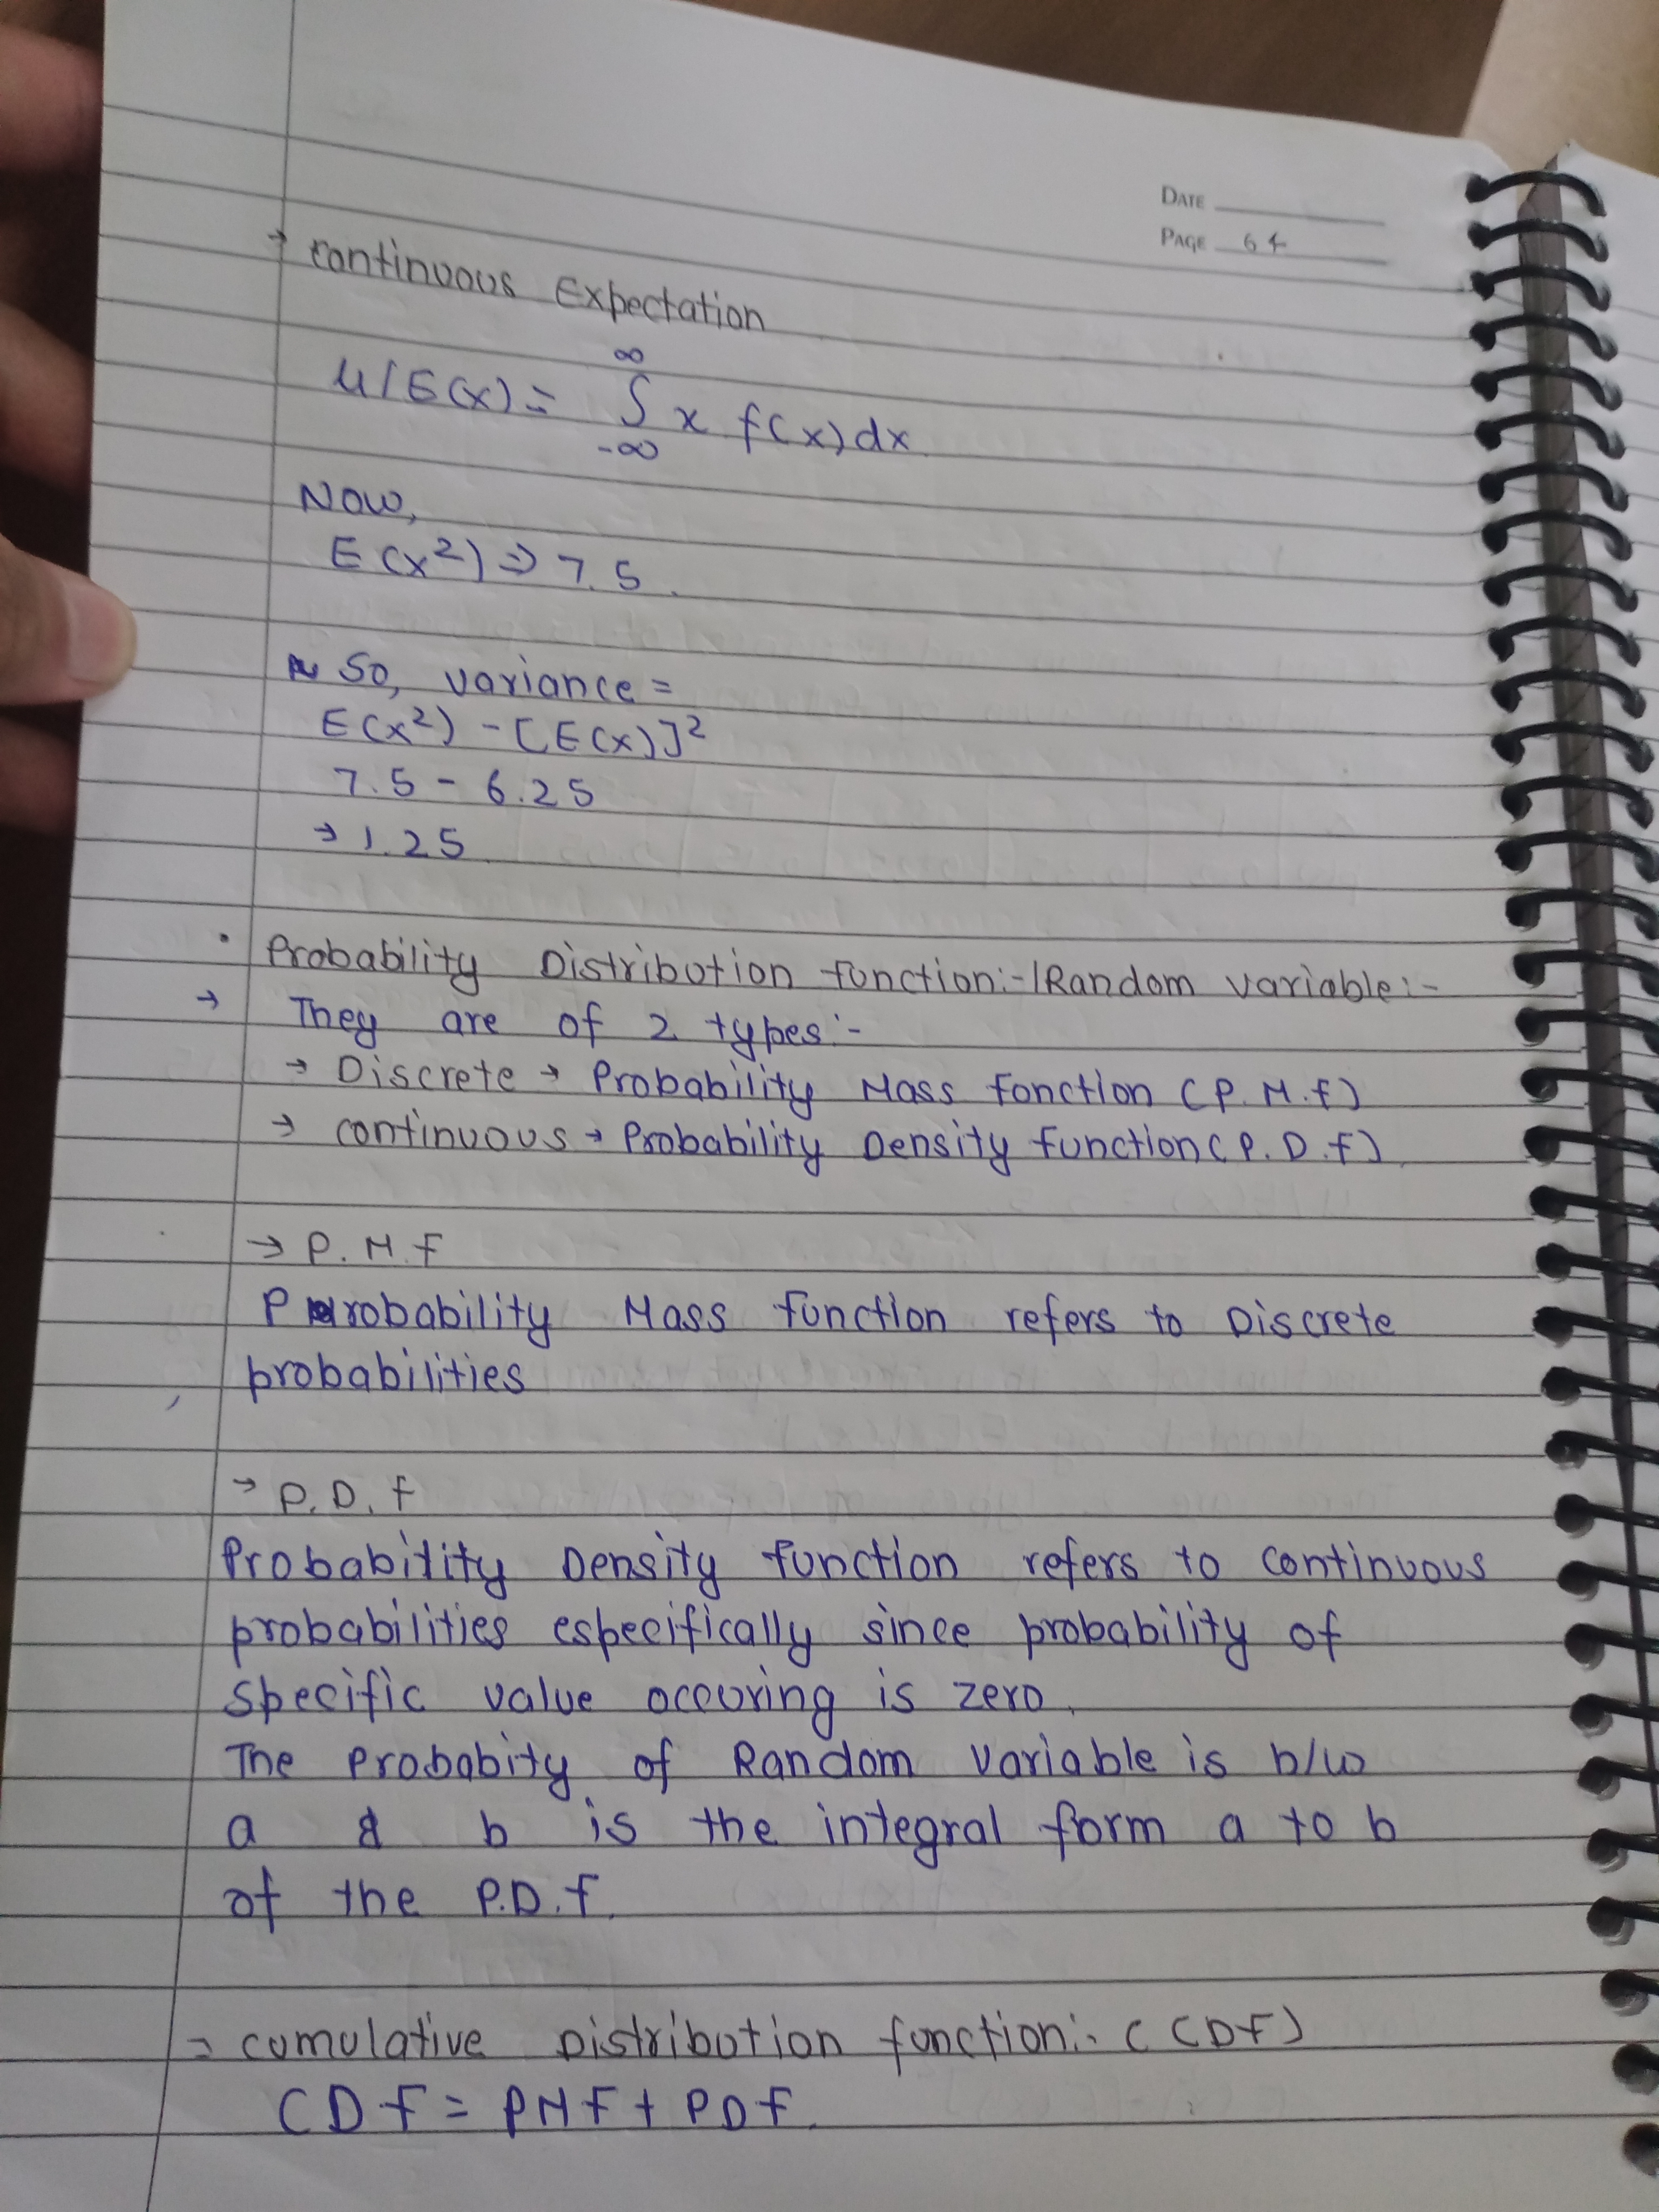 DATE
PAGE 64
→ continuous Expectation
μ/E(x) = ∫_{-∞}^{∞} x f(x) dx
Now,
E(x²) ⇒ 7.5.
So, variance =
E(x²) - [E(x)]²
7.5 - 6.25
→ 1.25
• Probability Distribution function:-/Random variable:-
→ They are of 2 types:-
→ Discrete → Probability Mass Fonction (P.M.f)
→ continuous → Probability Density function (P.D.f)
→ P.M.F
Probability Mass function refers to Discrete
probabilities
→ P.D.f
Probability Density function refers to continuous
probabilities especifically since probability of
specific value occuring is zero.
The Probabity of Random variable is b/w
a & b is the integral form a to b
of the P.D.f.
= cumulative Distribution function:- (CDF)
CDF = PMF + PDF.